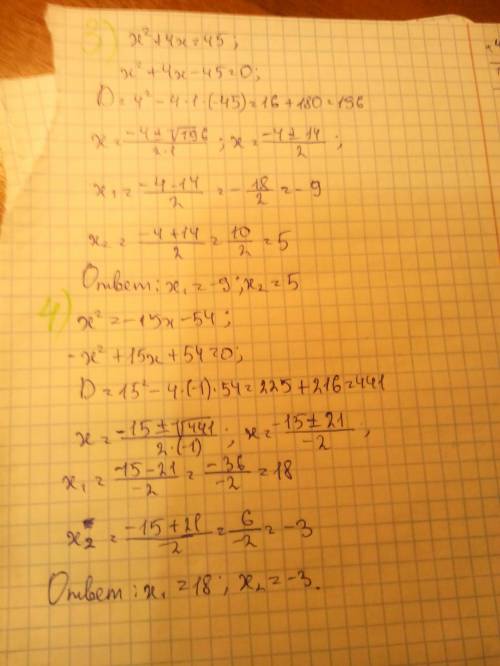 3) x² + 4x = 45;
x² + 4x - 45 = 0;
D = 4² - 4 · 1 · (-45) = 16 + 180 = 196
x = (-4 ± √196)/(2·1); x = (-4 ± 14)/2;
x₁ = (-4 - 14)/2 = -18/2 = -9
x₂ = (-4 + 14)/2 = 10/2 = 5
Ответ: x₁ = -9; x₂ = 5
4) x² = -15x - 54;
-x² + 15x + 54 = 0;
D = 15² - 4 · (-1) · 54 = 225 + 216 = 441
x = (-15 ± √441)/(2·(-1)); x = (-15 ± 21)/-2,
x₁ = (-15 - 21)/-2 = -36/-2 = 18
x₂ = (-15 + 21)/-2 = 6/-2 = -3
Ответ: x₁ = 18; x₂ = -3.